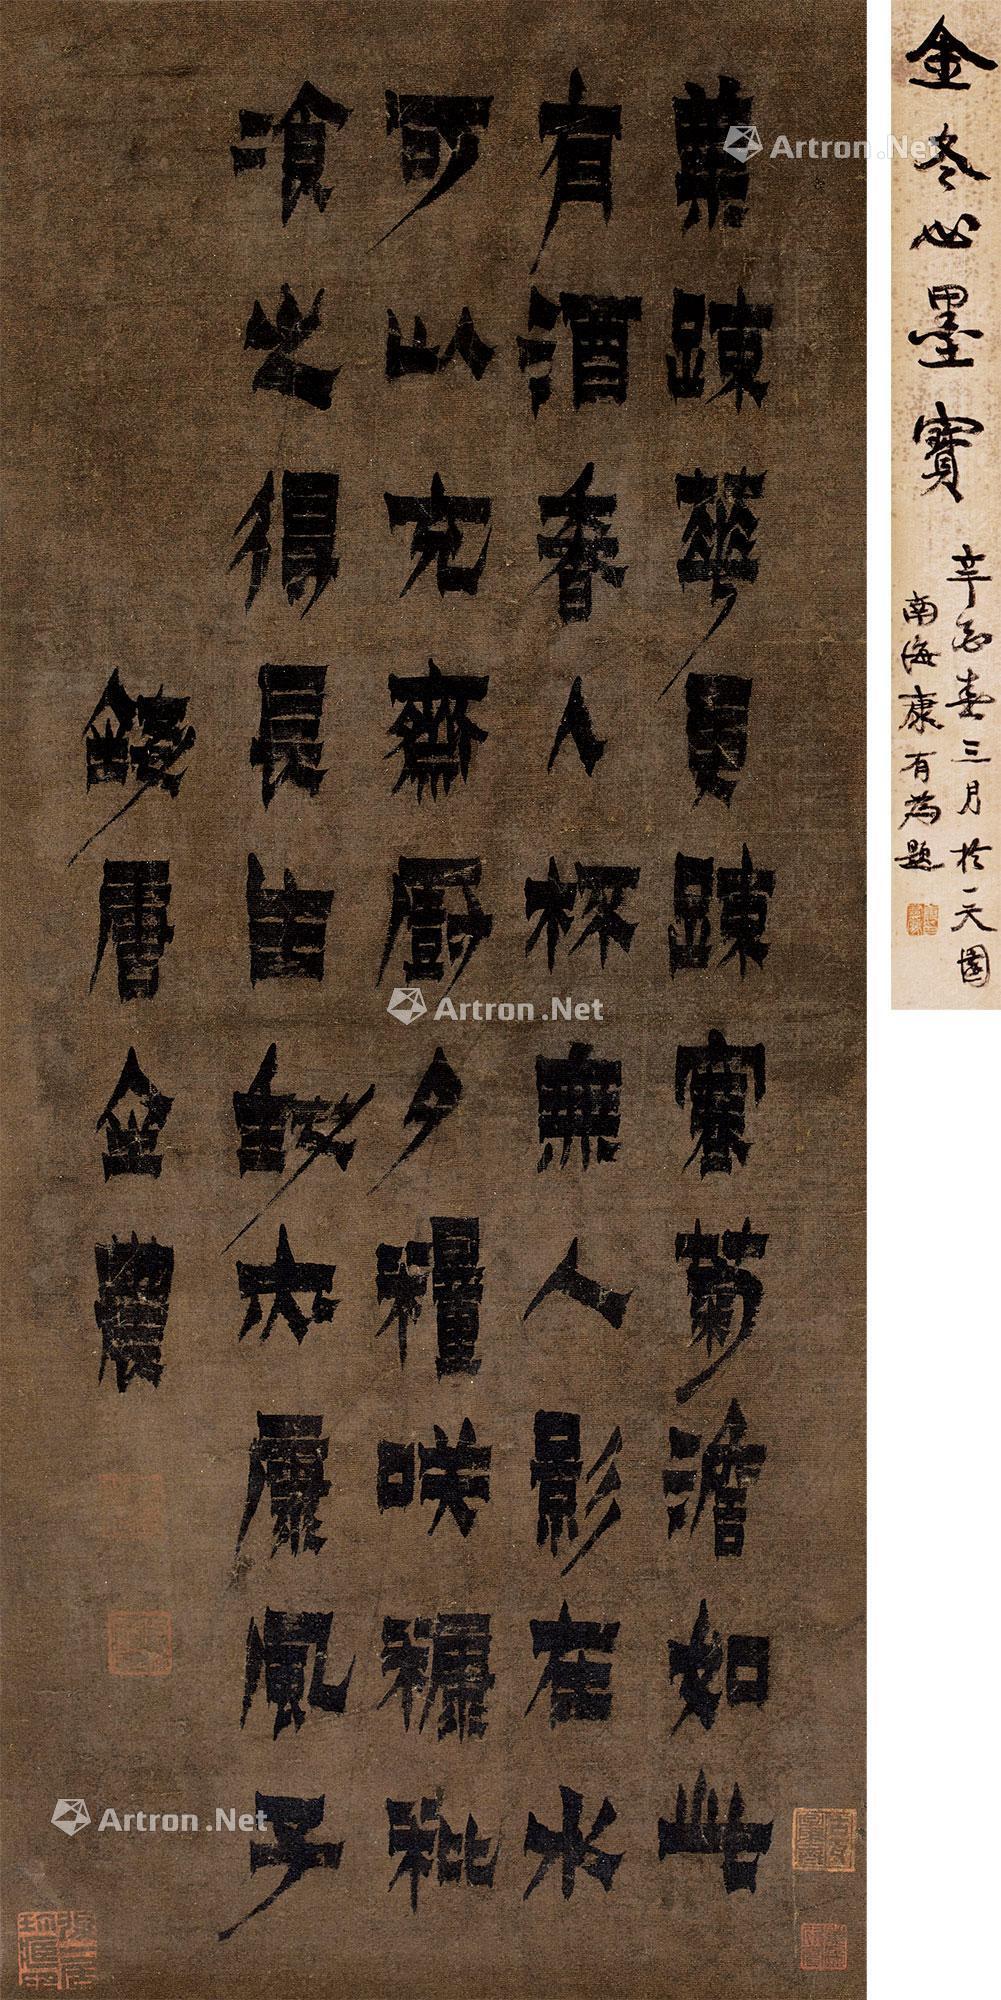 葉踈華更踈寒菊澹如此
有酒香人杯無人影在水
可以充齋厨夕糧咲糠秕
飡之得長生康風子
錢唐金農
金冬心墨寳
辛酉春三月於一天園
南海康有為題
Artron.Net
Artron.Net
Artron.Net